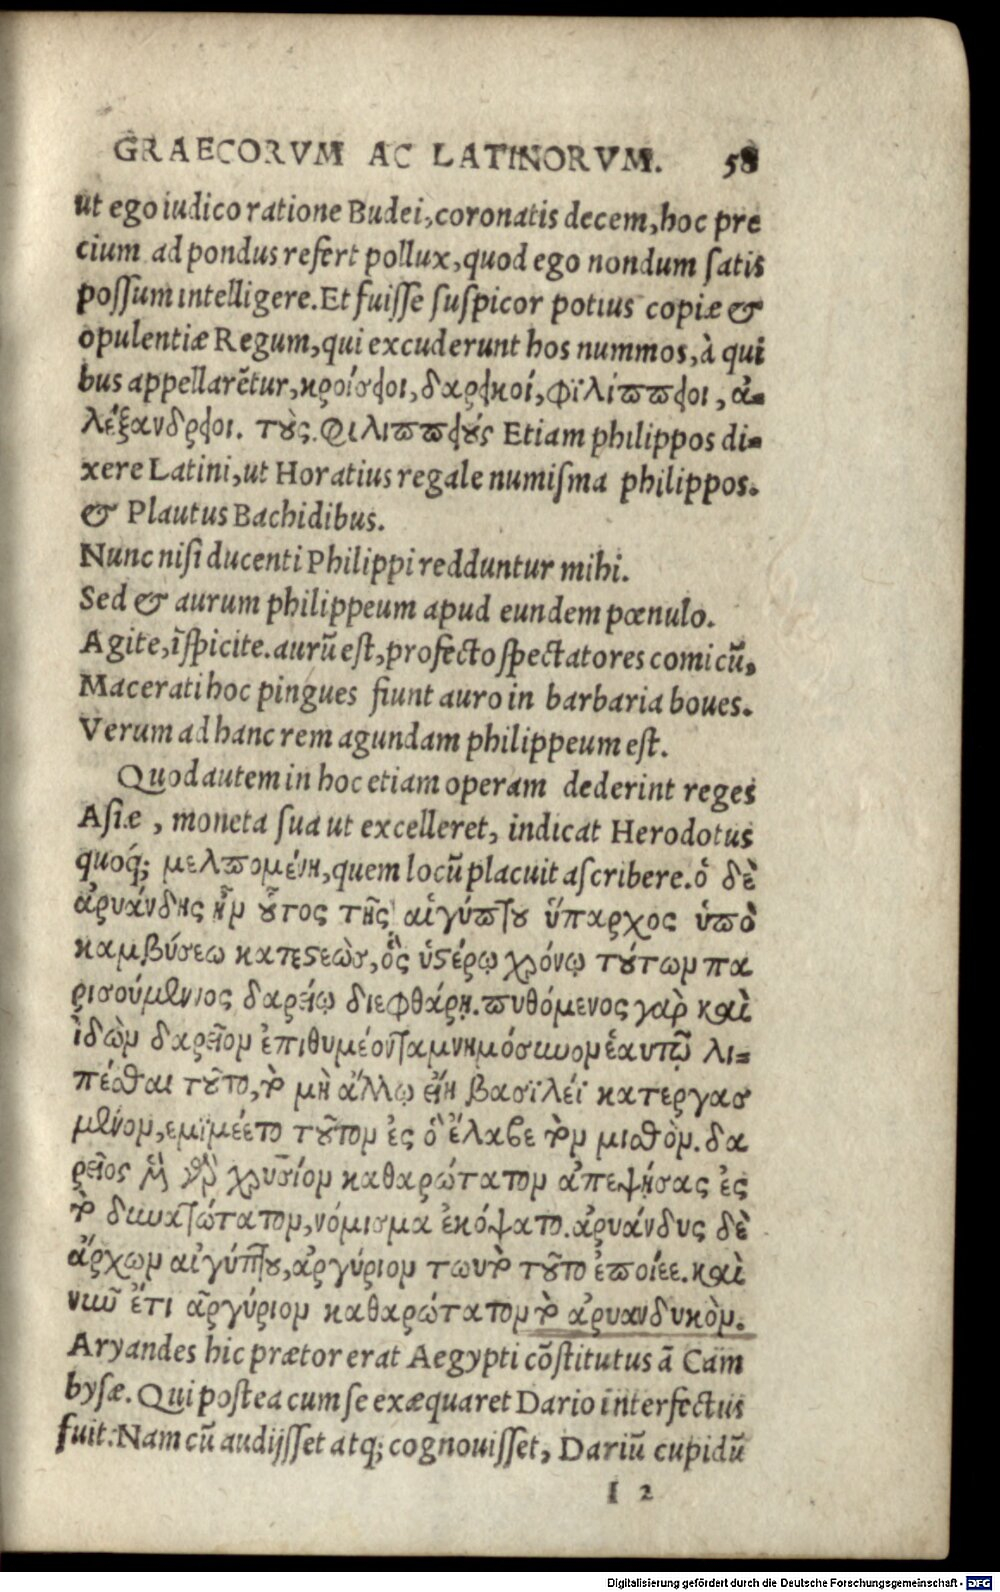 GRAECORVM AC LATINORVM. 58
ut ego iudico ratione Budei, coronatis decem, hoc pre
cium ad pondus refert pollux, quod ego nondum satis
possum intelligere. Et fuisse suspicor potius copiæ &
opulentiæ Regum, qui excuderunt hos nummos, à qui
bus appellarẽtur, κροίσφοι, δαρφκοί, φϊλίππφοι, ἀ-
λέξανδρφοι. τοὺς Φιλιππφούς Etiam philippos di-
xere Latini, ut Horatius regale numisma philippos.
& Plautus Bachidibus.
Nunc nisi ducenti Philippi redduntur mihi.
Sed & aurum philippeum apud eundem pœnulo.
Agite, ĩspicite. aurũ est, profecto spectatores comicũ,
Macerati hoc pingues fiunt auro in barbaria boues.
Verum ad hanc rem agundam philippeum est.
Quod autem in hoc etiam operam dederint reges
Asiæ, moneta sua ut excelleret, indicat Herodotus
quoq́; μελπομένη, quem locũ placuit ascribere. ὁ δὲ
ἀρυάνδης ἦν οὗτος τῆς αἰγύπτου ὕπαρχος ὑπὸ
καμβύσεω κατεστεὼς, ὃς ὑστέρῳ χρόνῳ τούτων πα
ρισούμενος δαρείῳ διεφθάρη. πυθόμενος γὰρ καὶ
ἰδὼν δαρεῖον ἐπιθυμέοντα μνημόσυνον ἑαυτῷ λι-
πέσθαι τοῦτο, τὸ μὴ ἄλλῳ εἴη βασϊλέϊ κατεργασ
μένον, εμϊμέετο τοῦτον ἐς ὃ ἔλαβε τὸν μισθὸν. δα
ρεῖος μὲν γὰρ χρυσίον καθαρώτατον ἀπεψήσας ἐς
τὸ δυνατώτατον, νόμισμα ἐκόψατο. ἀρυάνδυς δὲ
ἄρχων αἰγύπτου, ἀργύριον τωυτὸ τοῦτο ἐποίεε. καὶ
νῦν ἔτι ἀργύριον καθαρώτατον τὸ ἀρυανδυκὸν.
Aryandes hic prætor erat Aegypti cõstitutus ã Cam
bysæ. Qui postea cum se exæquaret Dario interfectus
fuit. Nam cũ audijsset atq; cognouisset, Dariũ cupidũ
I 2
Digitalisierung gefördert durch die Deutsche Forschungsgemeinschaft - DFG